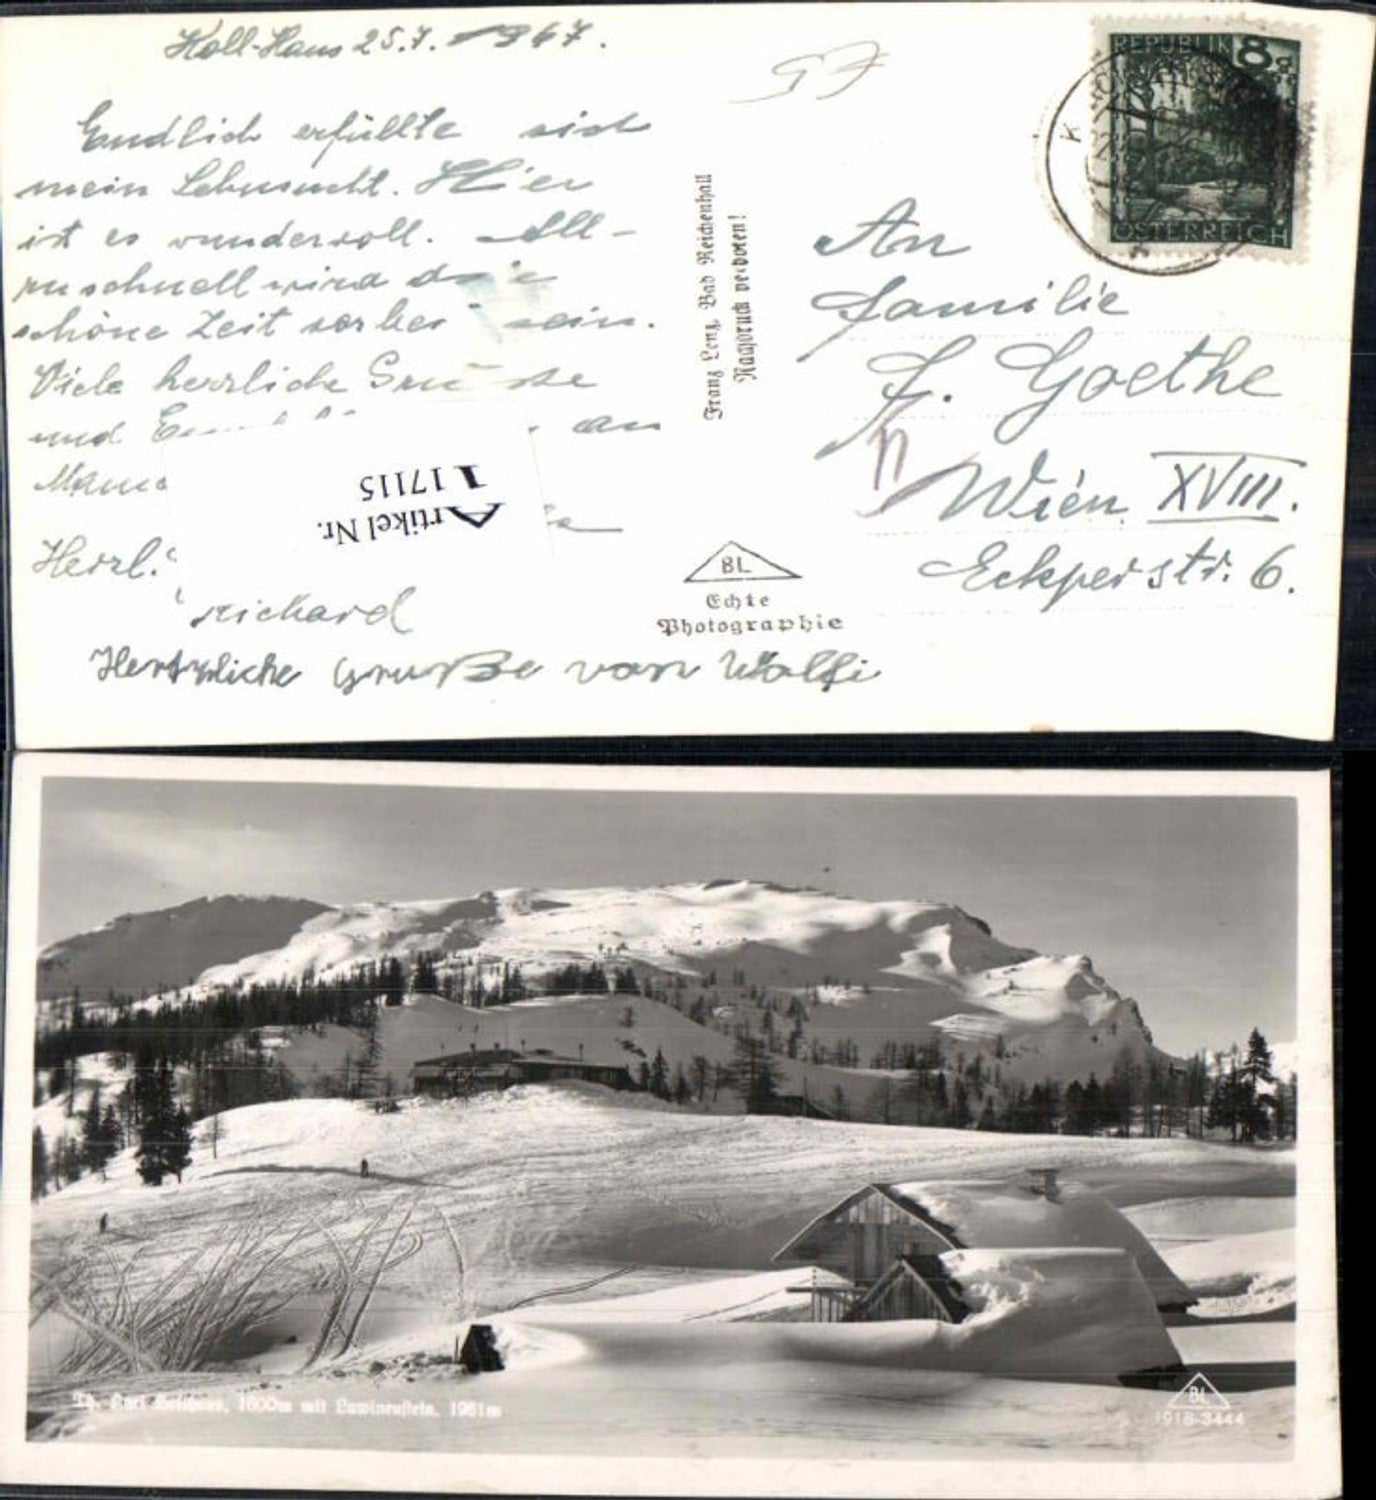 Koll-Haus 25.7. 1947.
Endlich erfüllte sich
mein Sehnsucht. Hier
ist es wundervoll. All-
zu schnell wird die
schöne Zeit vorbei sein.
Viele herzliche Grüsse
und an
Herzl.
Richard
Hertzliche Grüße von Wolfi
Artikel Nr.
117115
57
Franz Lenz, Bad Reichenhall
Nachdruck verboten!
BL
Echte
Photographie
REPUBLIK 8g
ÖSTERREICH
An
Familie
F. Goethe
Wien XVIII.
Eckperstr. 6.
Th. Karl Hollhaus, 1600m mit Lawinenstein, 1961m
BL
1918-3444